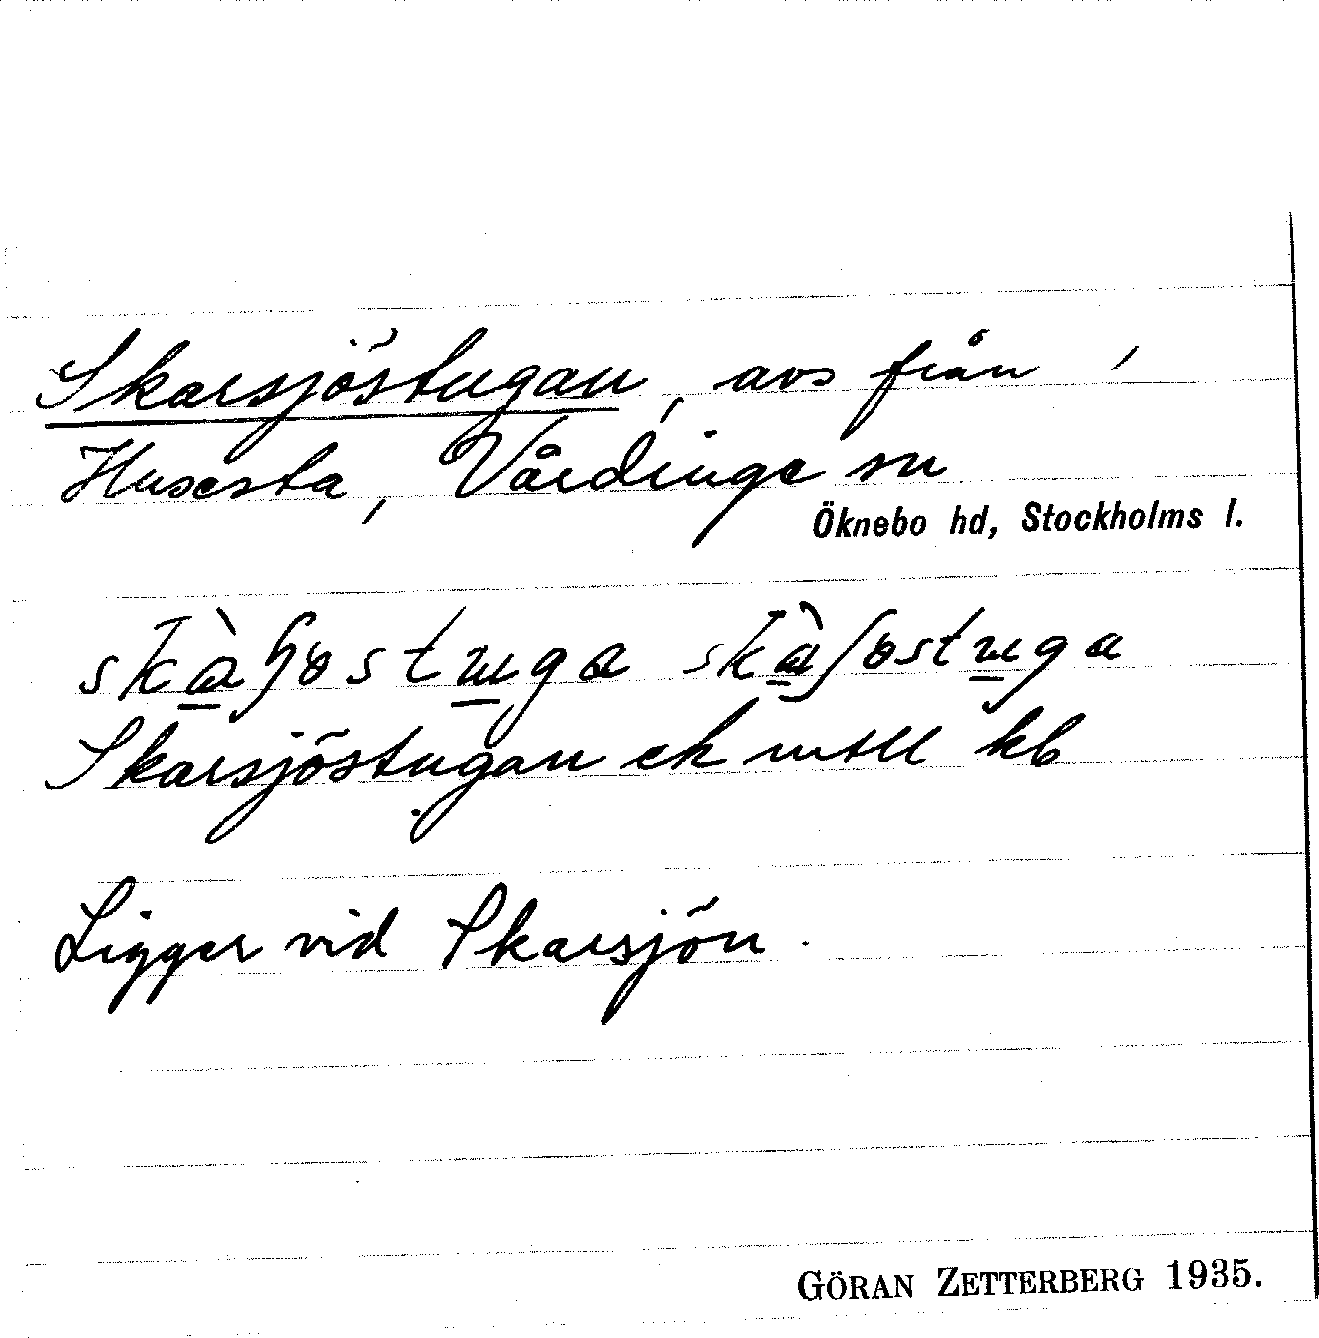 Skarsjöstugan, avs från
Husesta, Vårdinge sn
Öknebo hd, Stockholms l.
Skarsjöstugan ek kb
Ligger vid Skarsjön.
GÖRAN ZETTERBERG 1935.